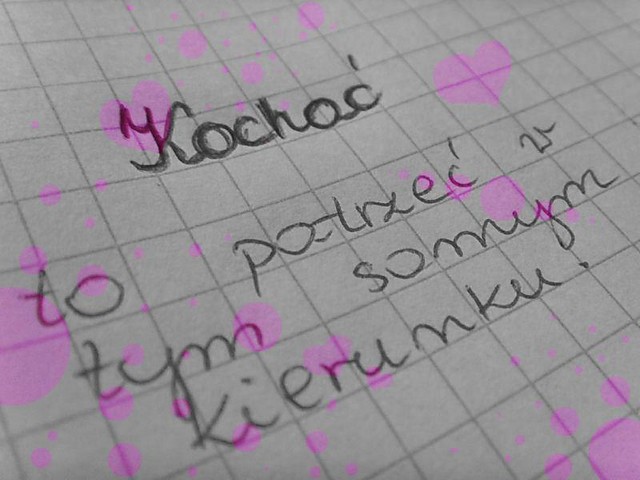 Kochać
to patrzeć w
tym samym
kierunku.